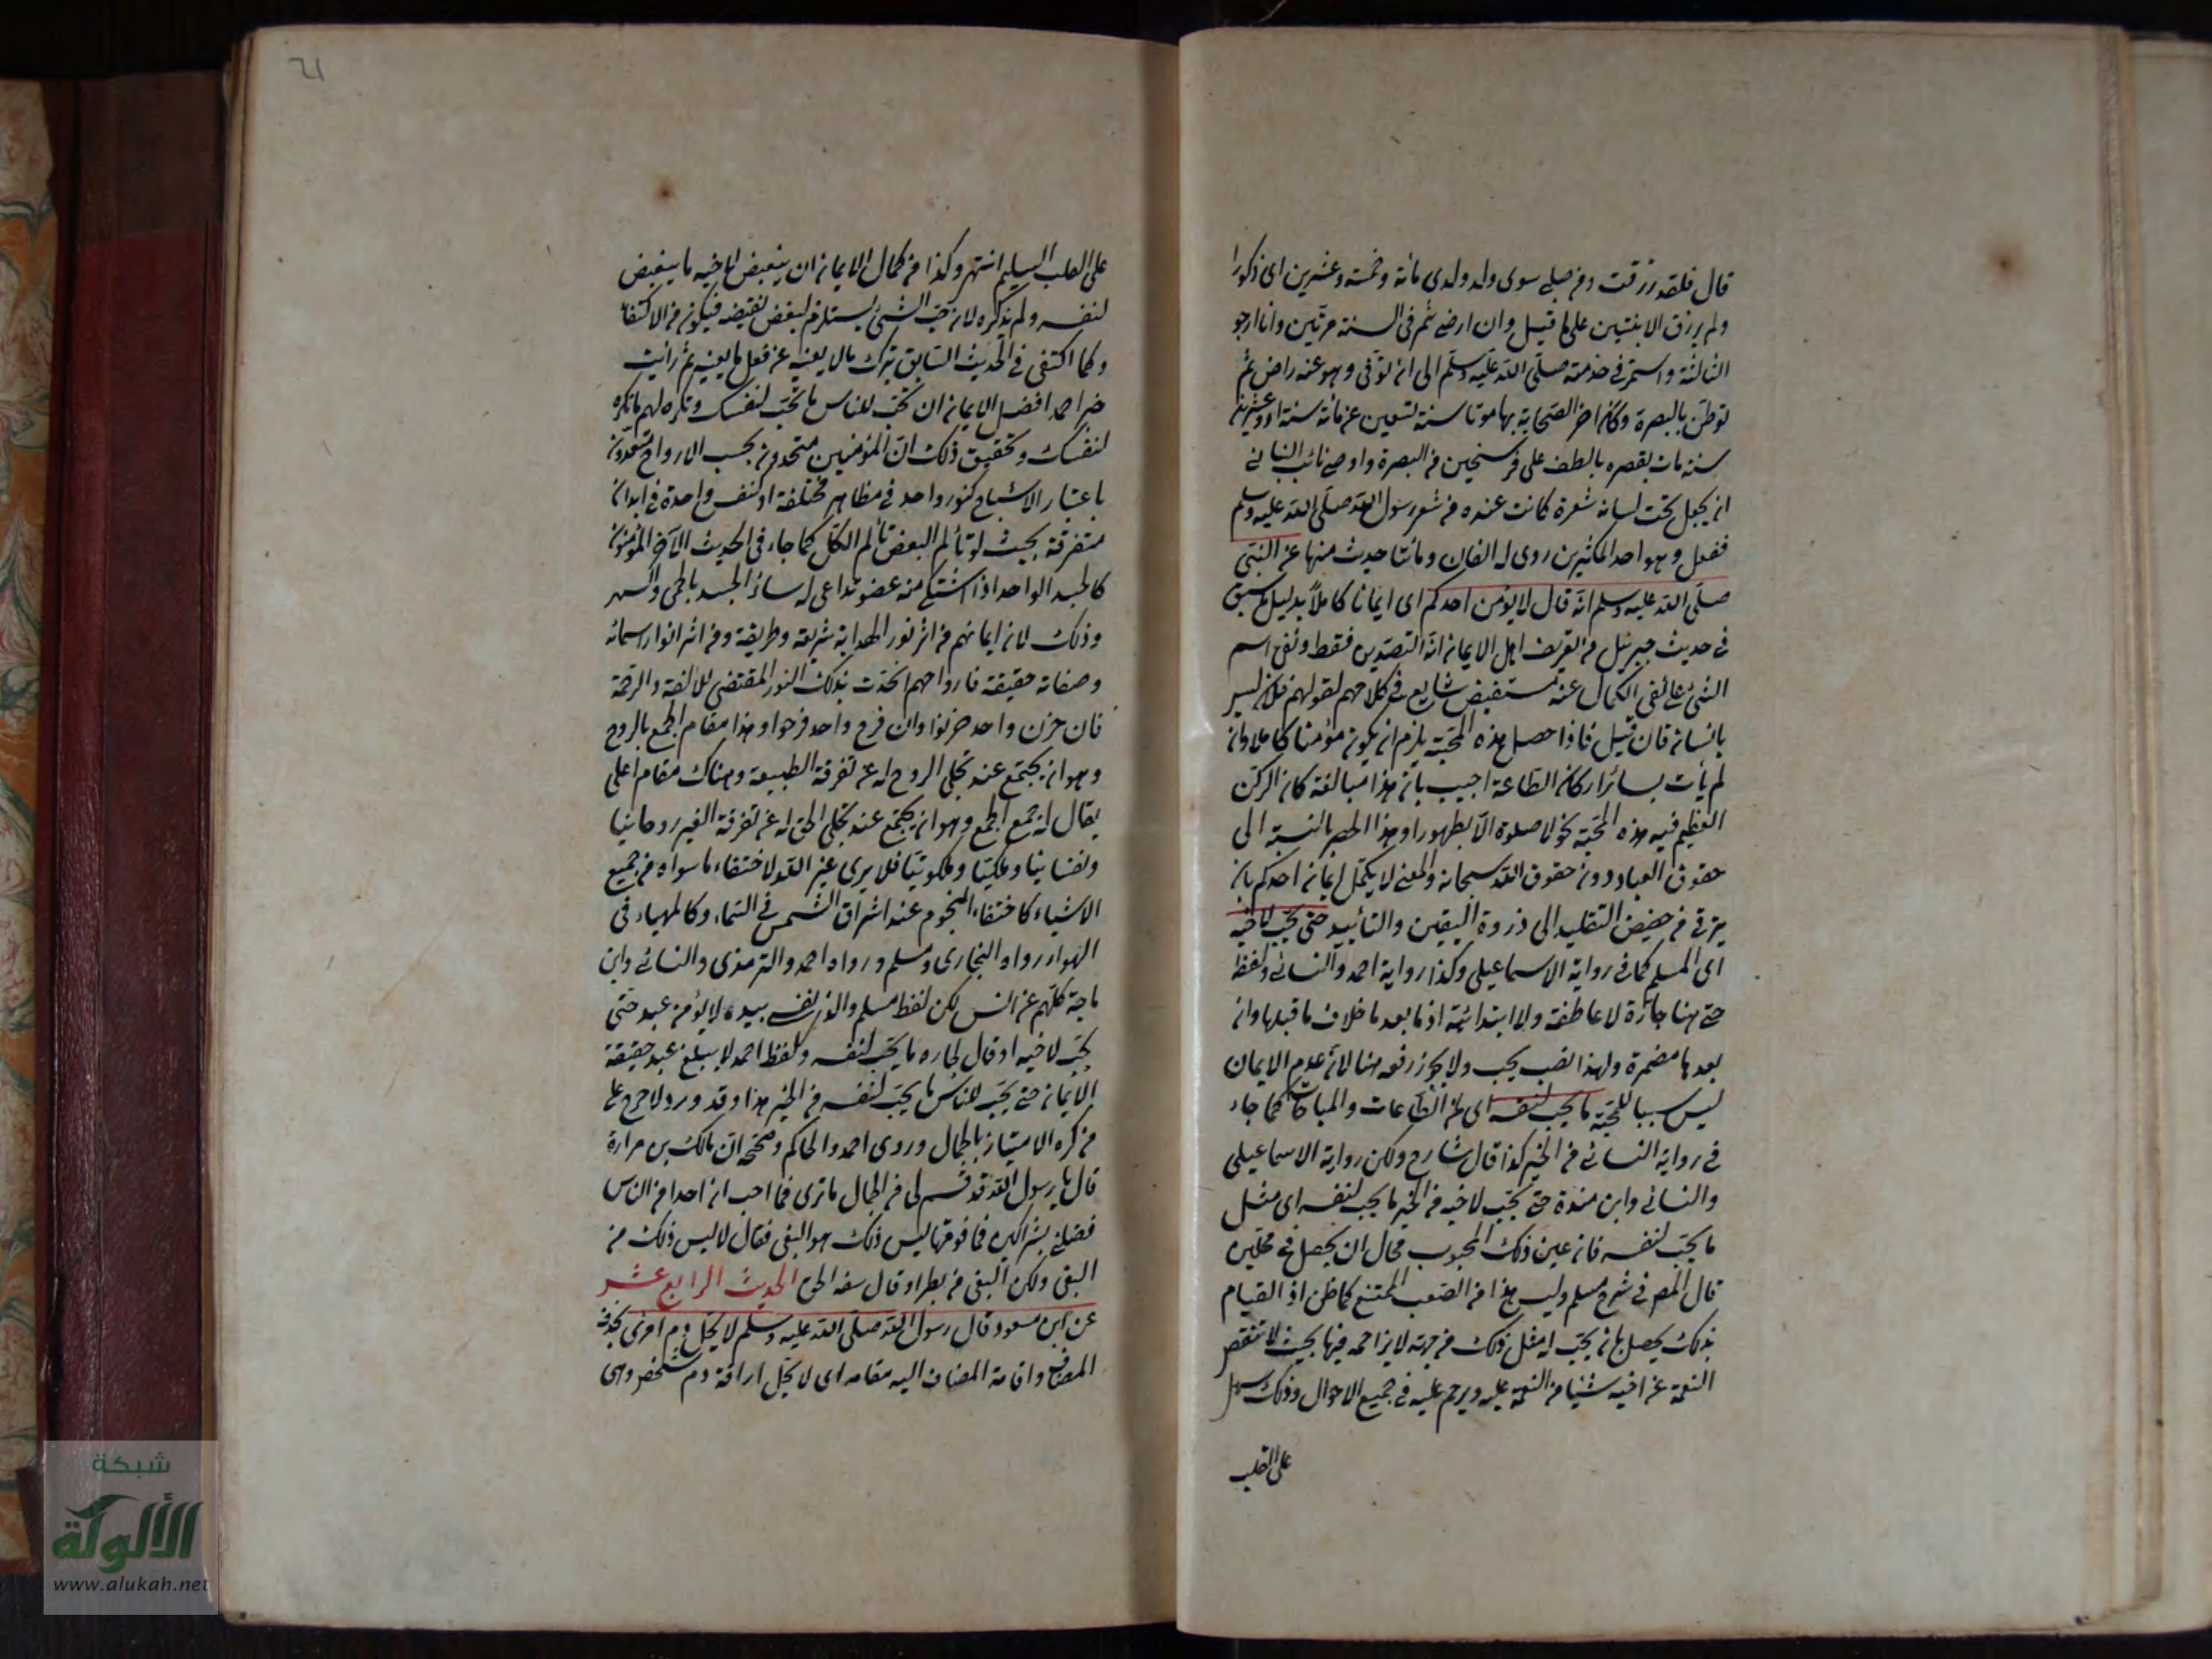 قال فلقد رزقت من صلبى سوى ولد ولدى مائة وخمسة وعشرين اى ذكورا
ولم يرزق الا بنتين على ما قيل وان ارضى تثمر فى السنة مرتين وانا ارجو
الثالثة واستمر فى خدمته صلى الله عليه وسلم الى ان توفى وهو عنه راض ثم
توطن بالبصرة وكان اخر الصحابة بها موتا سنة تسعين عن مائة سنة او وعشرين
سنة مات بقصره بالطف على فرسخين من البصرة واوصى ثابت البنانى
ان يجعل تحت لسانه شعرة كانت عنده من شعر رسول الله صلى الله عليه وسلم
ففعل وهو احد المكثرين روى له الفان ومائتا حديث منها عن النبى
صلى الله عليه وسلم انه قال لا يؤمن احدكم اى ايمانا كاملا بدليل ما سبق
فى حديث جبرئيل من تعريف اهل الايمان انه التصديق فقط ونفى اسم
الشئ على نفى الكمال عنه مستفيض شايع فى كلامهم لقولهم فلان ليس
بانسان فان قيل فاذا حصل هذه المحبة يلزم ان يكون مؤمنا كاملا وان
لم يأت بسائر اركان الطاعة اجيب بان هذا مبالغة كان الركن
العظيم فيه هذه المحبة نحو لا صلوة الا بطهور او هذا الحصر بالنسبة الى
حقوق العباد دون حقوق الله سبحانه والمعنى لا يكمل ايمان احدكم بان
يترقى من حضيض التقليد الى ذروة اليقين والتأييد حتى يحب لاخيه
اى المسلم كما فى رواية الاسماعيلى وكذا رواية احمد والنسائى ولفظ
حتى هنا جارة لا عاطفة ولا ابتدائية اذ ما بعدها خلاف ما قبلها وان
بعدها مضمرة ولهذا نصب يحب ولا يجوز رفعه هنا لان عدم الايمان
ليس سببا للمحبة ما يحب لنفسه اى من الطاعات والمباحات كما جاء
فى رواية النسائى من الخير كذا قال شارح ولكن رواية الاسماعيلى
والنسائى وابن مندة حتى يحب لاخيه من الخير ما يحب لنفسه اى مثل
ما يحب لنفسه فان عين ذلك المحبوب محال ان يحصل فى محلين
قال المص فى شرح مسلم وليس هذا من الصعب الممتنع كما ظن اذ القيام
بذلك يحصل بان يحب له مثل ذلك من جهة لا يزاحمه فيها بحيث لا تنقص
النعمة عن اخيه شيئا من النعمة عليه ويرحم عليه فى جميع الاحوال وذلك سهل
على القلب
٦١
على القلب السليم انتهى وكذا من كمال الايمان ان يبغض لاخيه ما يبغض
لنفسه ولم يذكره لان حب الشئ يستلزم لبغض نقيضه فيكون من الاكتفاء
وكما اكتفى فى الحديث السابق بترك ما لا يعنيه عن فعل ما يعنيه ثم رأيت
خبر احمد افضل الايمان ان تحب للناس ما تحب لنفسك وتكره لهم ما تكره
لنفسك وتحقيق ذلك ان المؤمنين متحدون بحسب الارواح متعددون
باعتبار الاشباح كنور واحد فى مظاهر مختلفة او كنفس واحدة فى ابدان
متفرقة بحيث لو تألم البعض تألم الكل كما جاء فى الحديث الآخر المؤمنون
كالجسد الواحد اذا اشتكى منه عضو تداعى له سائر الجسد بالحمى والسهر
وذلك لان ايمانهم من اثر نور الهداية شريعة وطريقة ومن اثر انوار اسمائه
وصفاته حقيقة فارواحهم اتحدت بذلك النور المقتضى للالفة والرحمة
فان حزن واحد حزنوا وان فرح واحد فرحوا وهذا مقام الجمع بالروح
وهو ان يجتمع عند تجلى الروح له عن تفرقة الطبيعة وهناك مقام اعلى
يقال له جمع الجمع وهو ان يجتمع عند تجلى الحق له عن تفرقة الغير روحانيا
ونفسانيا وملكيا وملكوتيا فلا يرى غير الله لاختفاء ما سواه من جميع
الاشياء كاختفاء النجوم عند اشراق الشمس فى السماء وكالهباء فى
الهواء رواه البخارى ومسلم ورواه احمد والترمذى والنسائى وابن
ماجة كلهم عن انس لكن لفظ مسلم والذى نفسى بيده لا يؤمن عبد حتى
يحب لاخيه او قال لجاره ما يحب لنفسه ولفظ احمد لا يبلغ عبد حقيقة
الايمان حتى يحب للناس ما يحب لنفسه من الخير هذا وقد ورد لا حرج على
من كره الامتياز بالجمال وروى احمد والحاكم وصححه ان مالك بن مرارة
قال يا رسول الله قد قسم لى من الجمال ما ترى فما احب ان احدا من الناس
فضلنى بشراكين فما فوقها ليس ذلك هو البغى فقال لا ليس ذلك من
البغى ولكن البغى من بطر او قال سفه الحق الحديث الرابع عشر
عن ابن مسعود قال رسول الله صلى الله عليه وسلم لا يحل دم امرئ بحذف
المضاف واقامة المضاف اليه مقامه اى لا يحل اراقة دم شخص وهى
شبكة
الألوكة
www.alukah.net